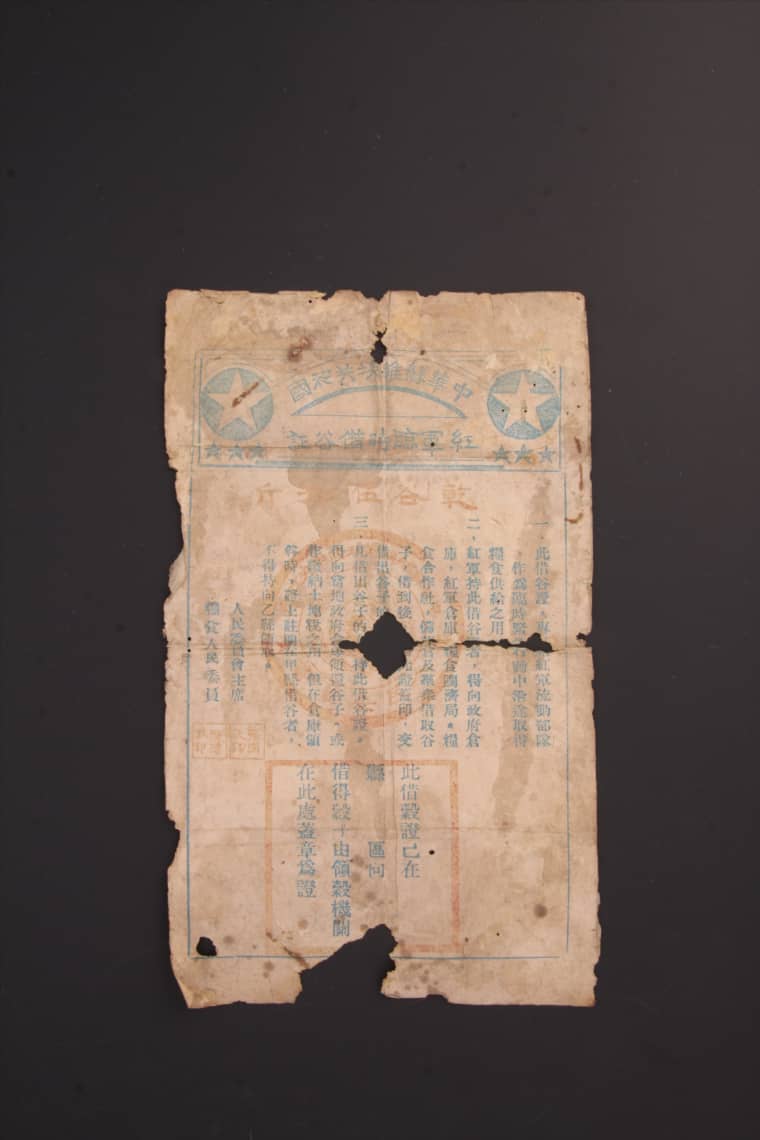 中華蘇維埃共和國
紅軍臨時借谷証
乾谷伍 斤
一、此借谷證，專 紅軍流動部隊
作為臨時緊 中沿途取得
糧食供給之用
二、紅軍持此借谷 者，得向政府倉
庫，紅軍倉庫 糧食調濟局，糧
食合作社， 及羣眾借取谷
子，借到後 證蓋印，交
借出谷子的
三、凡借出谷子的 持此借谷證，
得向當地政府 領還谷子，或
作繳納土地稅之用，但在倉庫領
谷時，證上註明在甲縣借谷者，
不得持向乙縣
人民委員會主席
糧食人民委員
此借穀證已在
縣 區向
借得穀子由領穀機關
在此處蓋章為證